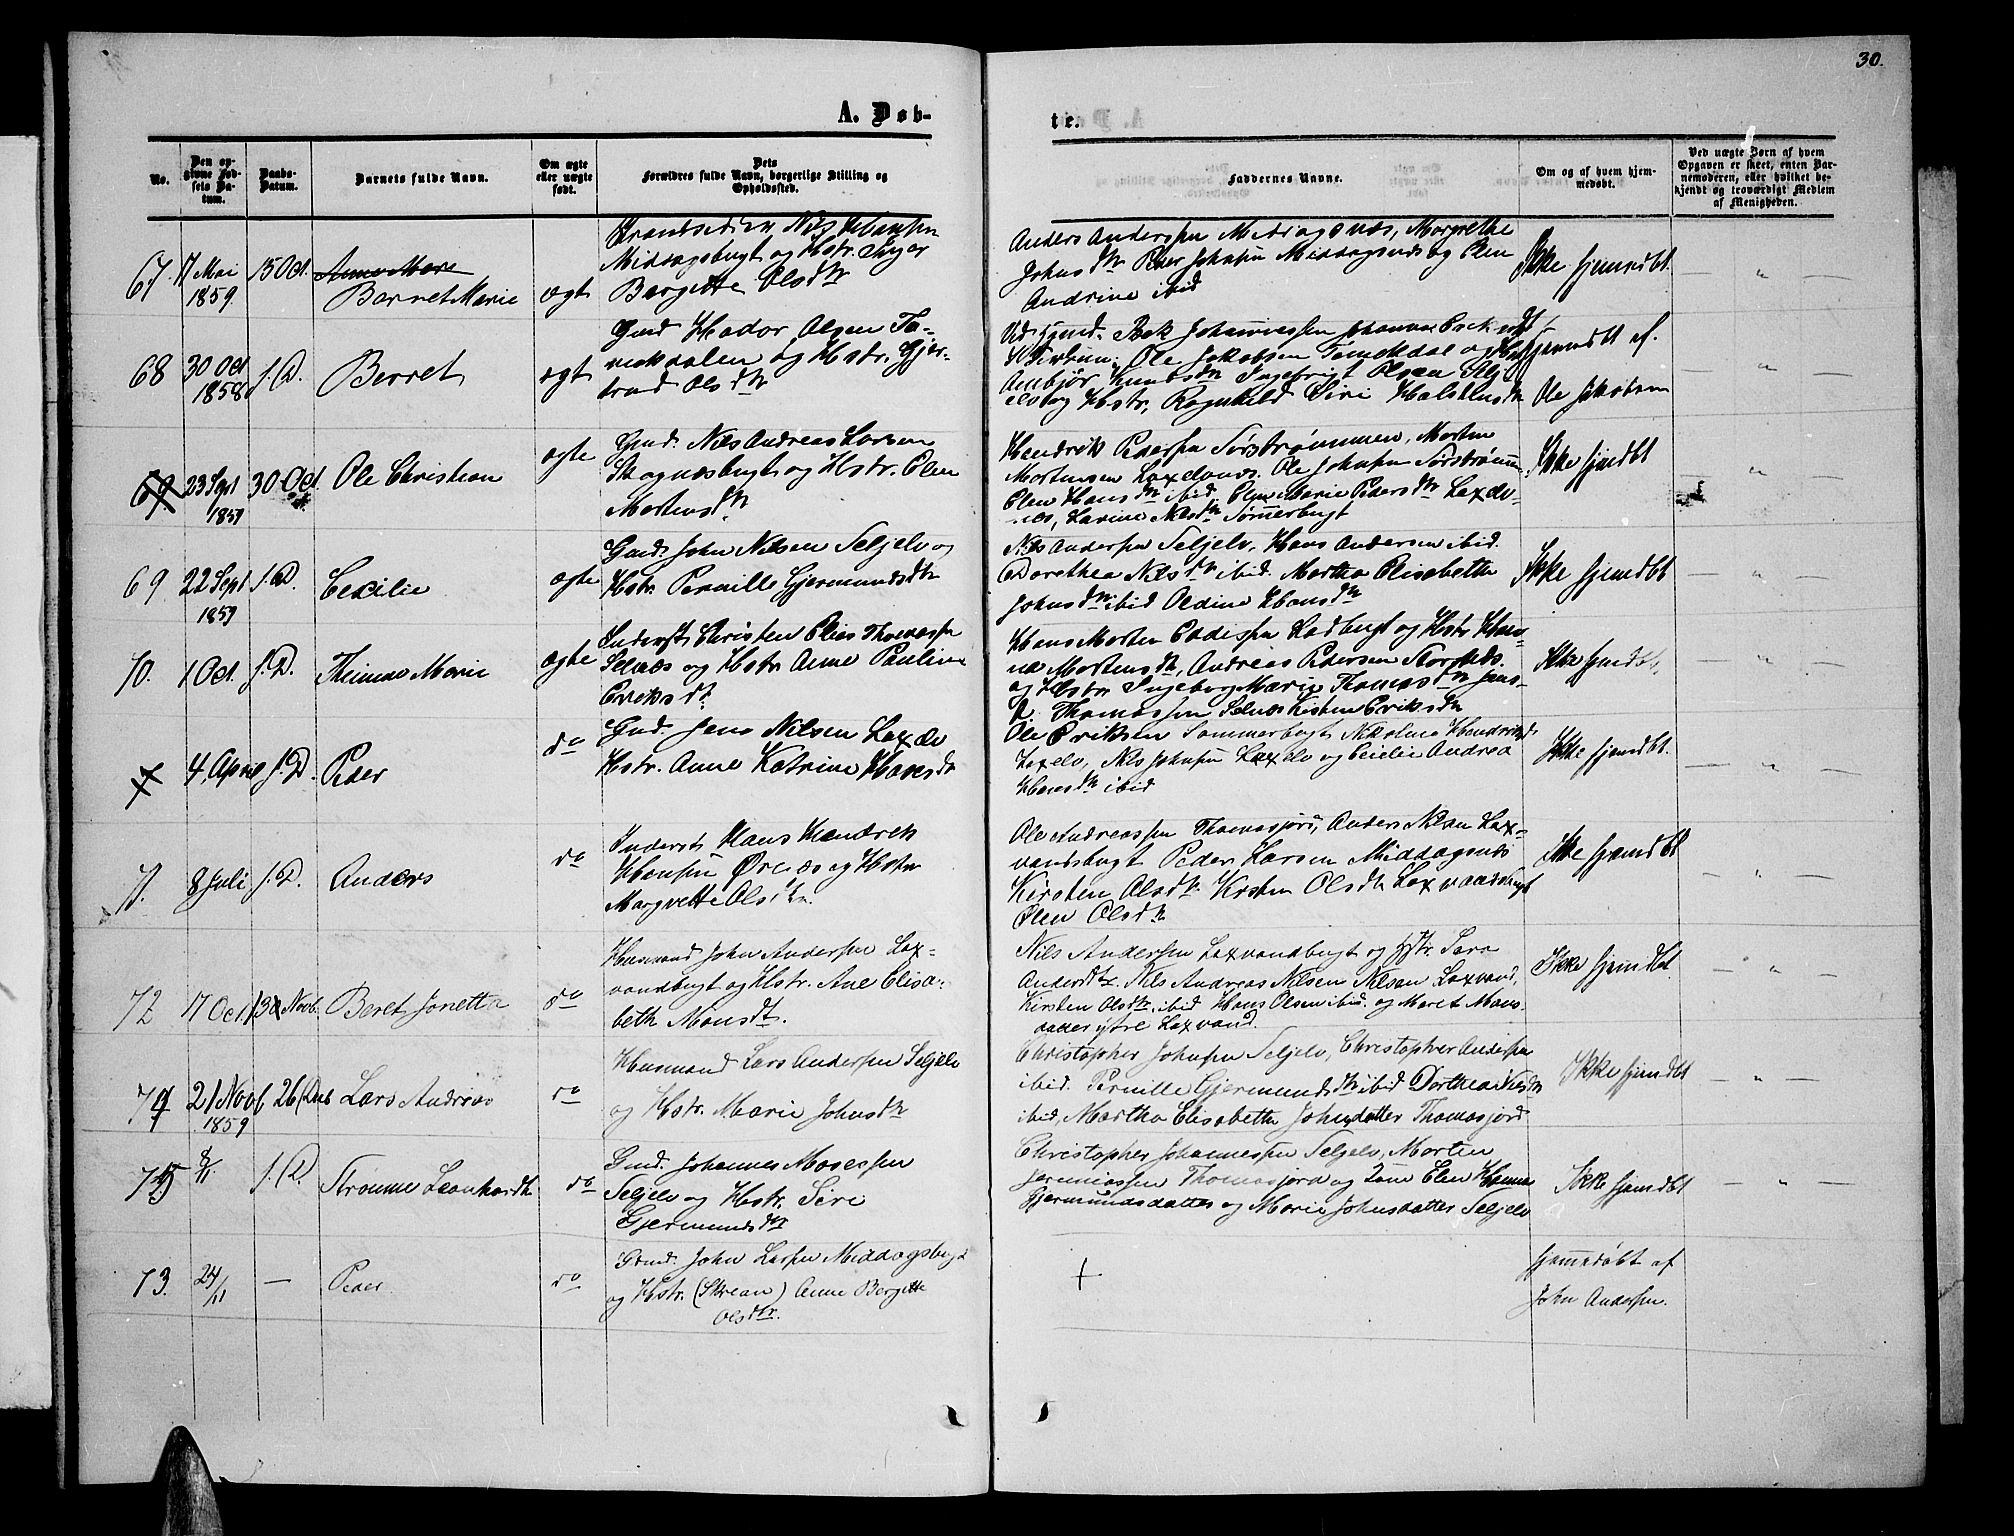 30.
A. Døb-
te.
No.
Den op-
givne Fød-
sels Da-
tum.
Daabs-
Datum.
Barnets fulde Navn.
Om ægte
eller uægte
født.
Dets
Forældres fulde Navn, borgerlige Stilling og
Opholdssted.
Faddernes Navne.
Om og af hvem hjem-
medøbt.
Ved uægte Børn af hvem
Opgaven er skeet, enten Bar-
nemoderen, eller hvilket be-
kjendt og troværdigt Medlem
af Menigheden.
67. 17 Mai
1859.
15 Oct.
Anne Marie
Berret Marie
ægt
Strandsidder Nils Hansen
Middagsbugt og Hstr. Inger
Bergette Olsdtr
Anders Anderssen Middagsnæs, Margrethe
Johnsdtr Peder Johnsen Middagsnæs og Elen
Andrine ibid
Ikke hjemmedbt.
68 30 Oct
1858
s. D.
Berret
ægt
Gmd. Hador Olsen Ta-
mokdalen og Hstr. Gjer-
trud Olsdtr
Ole Jakobsen Tamokdal og
Ambjør Knudsdtr Ingebrigt Olsen Selj-
elv og Hstr. Ragnhild Siri Halstensdtr
hjemmdbt af.
Ole Jakobsen
69 23 Sept
1859
30 Oct.
Ole Christian
ægte
Gmd. Nils Andreas Larsen
Skognæsbugt og Hstr. Elen
Mortensdtr
Hendrik Pedersen Sørstrømmen, Morten
Mortensen Laxelvnæs. Ole Johnsen Sørstrømm.
Elen Hansdtr ibid. Elen Marie Pedersdtr Laxelv-
næs, Larine Nilsdtr Sommerbugt
Ikke hjemdbt
69 22 Sept
1859
s. D.
Cecilie
ægte
Gmd. John Nilsen Seljelv og
Hstr. Pernille Gjermundsdtr
Nils Andersen Seljelv, Hans Andersen ibid.
Dorethea Nilsdtr ibid. Martha Elisabeth
Johnsdtr ibid Oldine Hansdtr
Ikke hjemdbt
70. 1 Oct. s. D.
Marie
ægte
Inderst Christen Elias Thomassen
Selnæs og Hstr. Anne Pauline
Eriksdtr
Hans Morten Ladbugt og Hstr. Han-
na Mortensdtr, Andreas Pedersen Storstds.
og Hstr Ingeborg Marie Thomasdtr Jens
Thomassen Selnæs Kirsten Eriksdtr
Ikke hjemdbt,
4 April s. D.
Peder
do
Gmd. Jens Nilsen Laxelv
Hstr. Anne Katrine Hansdtr
Ole Eriksen Sommerbugt Nikoline Hendriksd.
Laxelv, Nils Johnsen Laxelv og Cecilie Andrea
Hansdtr ibid
Ikke hjemdbt.
71. 8 Juli s. D.
Anders
do
Inderst Hans Hendrik
Hansen Ørenæs og Hstr
Margrette Olsdtr.
Ole Andreassen Thomasjord, Anders Nilsen Lax-
vandsbugt Peder Larsen Middagsnæs
Kirsten Olsdtr. Kirsten Olsdtr Laxvandsbugt
Elen Olsdtr
Ikke hjemdbt
72 17 Oct. 13 Novb.
Beret Jonetta
do
Husmand John Andersen Lax-
vandbugt og Hstr. Ane Elisa-
beth Monsdtr.
Nils Andersen Laxvandbugt og Hstr. Sara
Andersdtr. Nils Andreas Nilsen Nilsen Laxvand,
Kirsten Olsdtr. ibid Hans Olsen ibid. og Maret Mons-
datter ytre Laxvand.
Ikke hjemdbt
74 21 Novb
1859
26 Decb
Lars Andreas
do
Husmand Lars Andersen Seljelv
og Hstr. Marie Johnsdtr
Christopher Johnsen Seljelv, Christopher Andersen
ibid. Pernille Gjermundsdtr ibid Dorthea Nilsdtr
ibid, Martha Elisabetha Johnsdatter Thomasjord
Ikke hjemdbt
75 8/11 s. D.
Strømme Leonhardt
do
Gmd. Johannes Mosessen
Seljelv og Hstr. Siri
Gjermundsdtr
Christopher Johannessen Seljelv, Morten
Jeremiassen Thomasjord og Elen Hanna
Gjermundsdatter og Marie Johnsdatter Seljelv
Ikke hjemdbt
73. 24/11 —
Peder
do
Gmd. John Larsen Middagsbugt
og Hstr. (Skrean) Anne Bergitte
Olsdtr.
+
hjemmedøbt af
John Andersen.